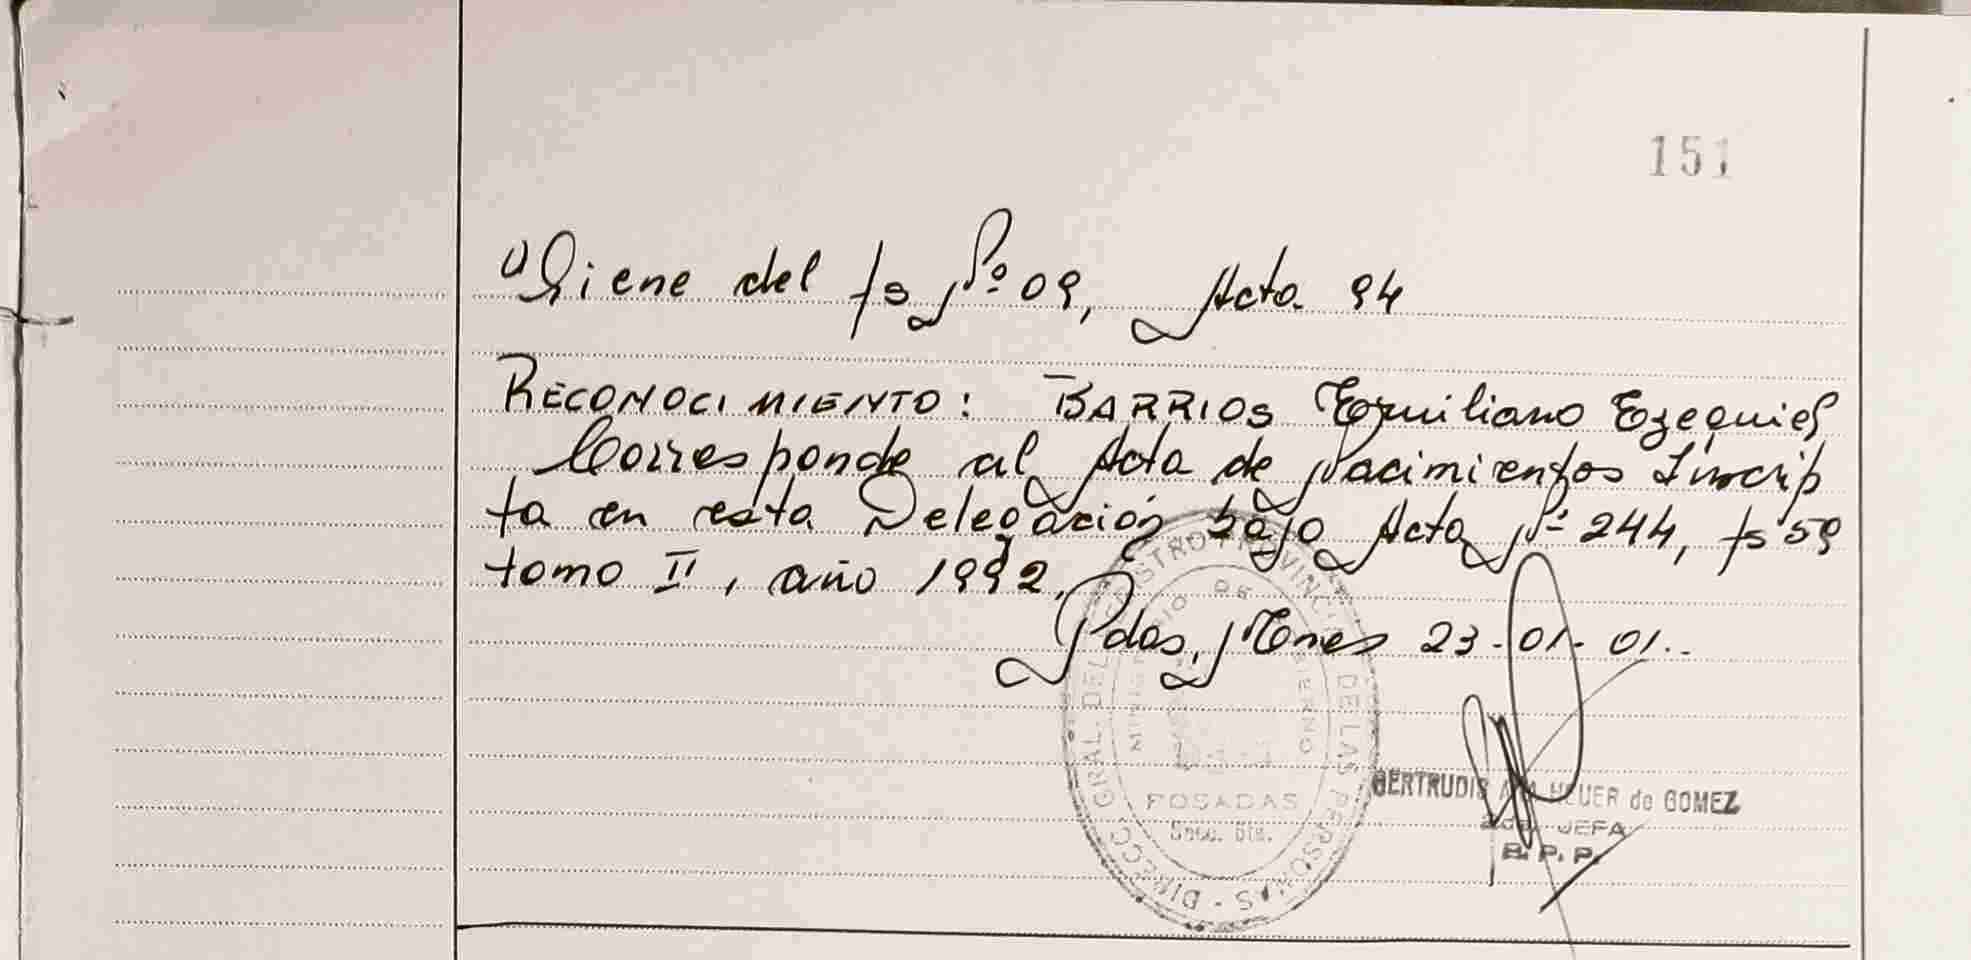 151
Viene del fs Nº 09, Acta 94
RECONOCIMIENTO: BARRIOS Emiliano Ezequiel
Corresponde al Acta de Nacimientos Inscrip
ta en esta Delegación bajo Acta Nº 244, fs 59
tomo II, año 1992.
Pdas, Mnes 23-01-01..
DIRECC. GRAL. DEL REGISTRO PROVINCIAL DE LAS PERSONAS
MINISTERIO DE GOBIERNO
POSADAS
GERTRUDIS HEUER de GOMEZ
JEFA
R. P. P.